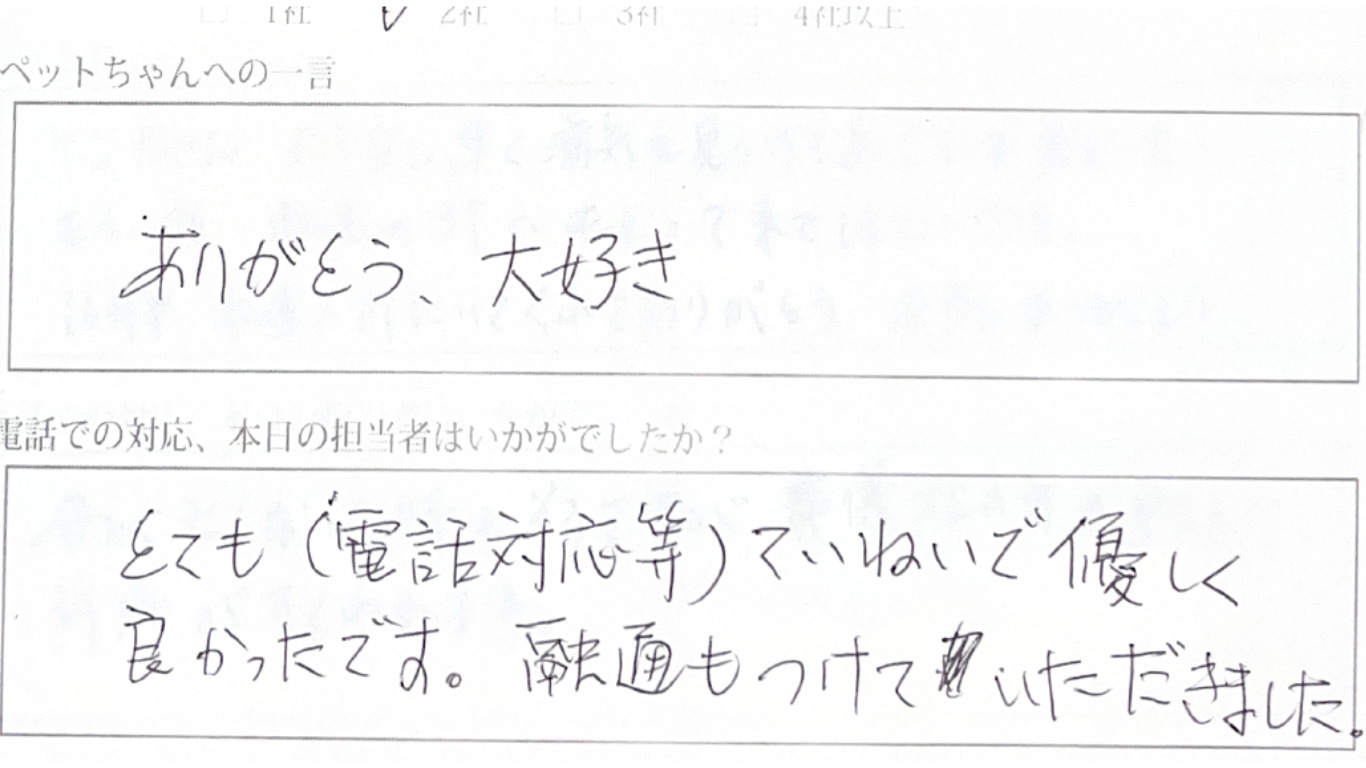 □ 1社 ☑ 2社 □ 3社 □ 4社以上
ペットちゃんへの一言
ありがとう、大好き
電話での対応、本日の担当者はいかがでしたか？
とても(電話対応等)ていねいで優しく
良かったです。融通もつけていただきました。